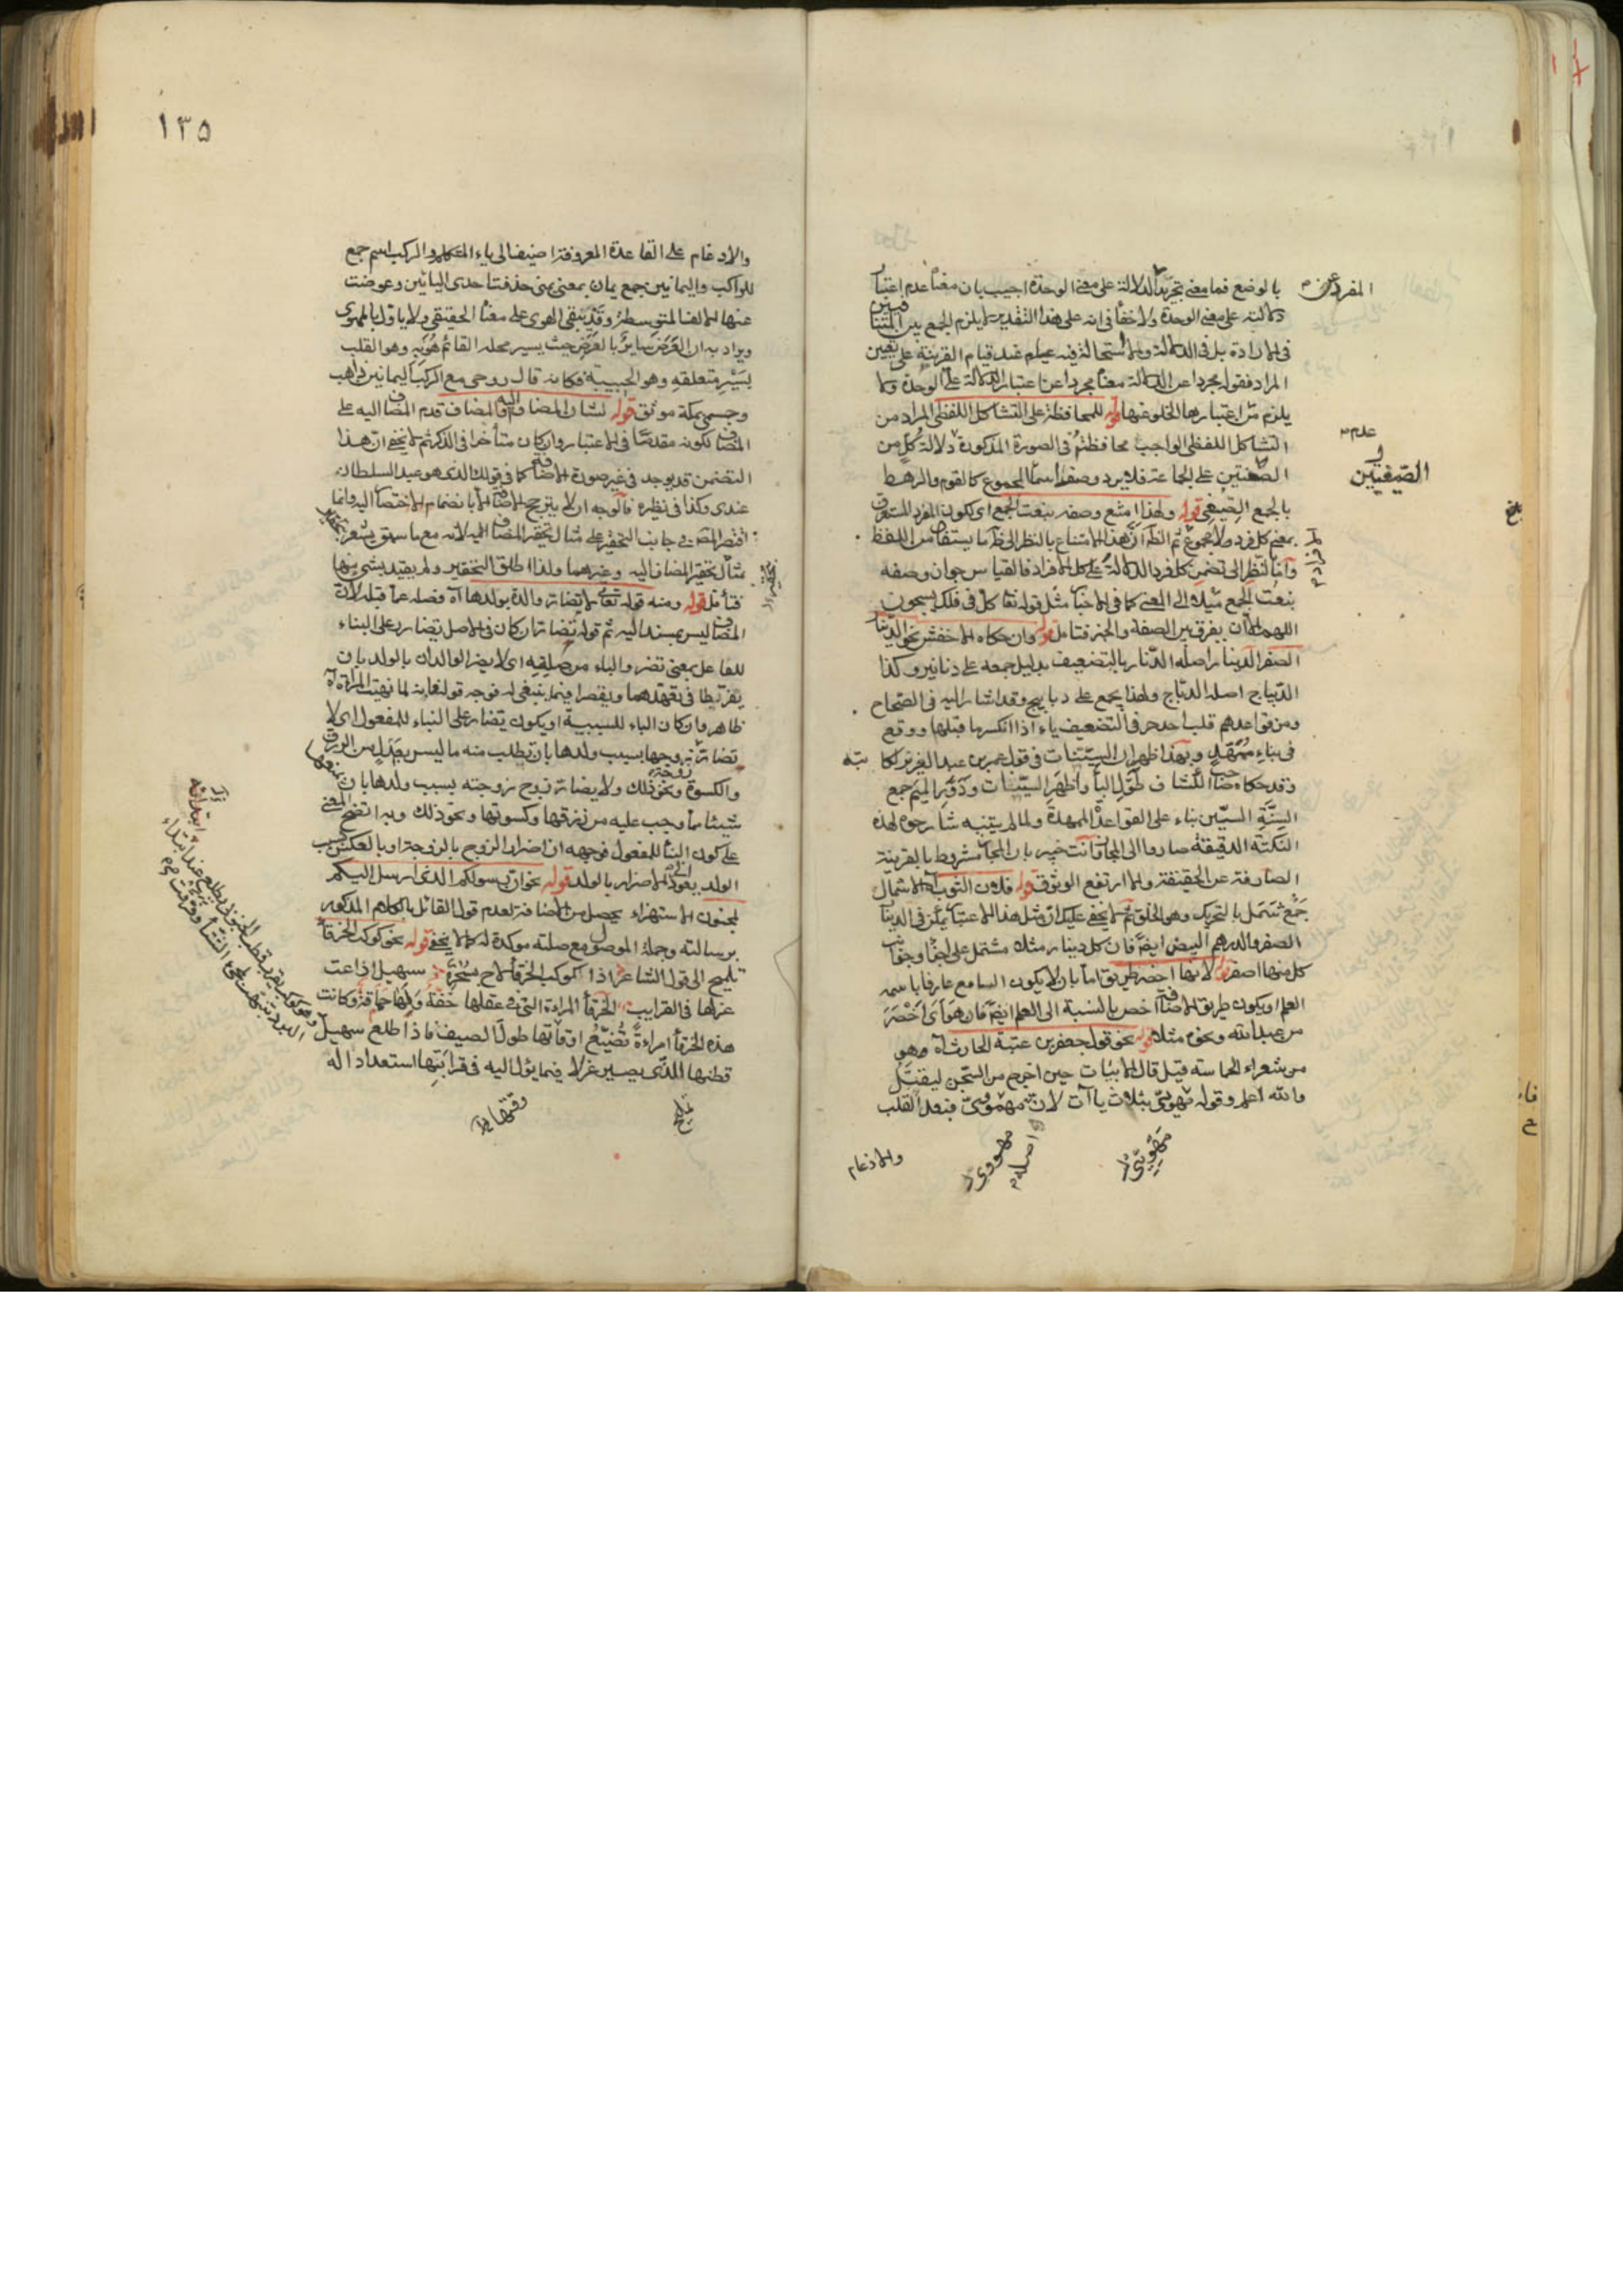 بالوضع فما معنى تجريد الدلالة على معنى الوحدة اجيب بان معناه عدم اعتبار
دلالته على معنى الوحدة ولا خفأ فى انه على هذا التقدير لا يلزم الجمع بين المتنافيين
فى الارادة بل فى الدلالة ولا استحالة فيه عند قيام القرينة على تعين
المراد فقوله مجردا عن الدلالة معناه مجردا عن اعتبار الدلالة على الوحدة ولا
يلزم من اعتبارها الخلو عنها قوله للمحافظة على التشاكل اللفظى المراد من
التشاكل اللفظى الواجب محافظته فى الصورة المذكورة دلالة كل من
الصيغتين على الجماعة فلا يرد وصف اسمأ المجموع كالقوم والرهط
بالجمع الصيغى قوله ولهذا امتنع وصفه بنعت الجمع اى لكون المفرد المستغرق
بمعنى كل فرد ولا مجموع ثم الظ ان هذا الامتناع بالنظر الى ظ ما يستفاد من اللفظ
وأما بالنظر الى تضمن كل فرد الدلالة على كل الافراد فالقياس جواز وصفه
بنعت الجمع ميلا الى المعنى كما فى الاخبار مثل قوله تعا كل فى فلك يسبحون
اللهم الا ان يفرق بين الصفة والخبر فتامل قوله وان حكاه الاخفش نحو الدينار
الصفر الدينار اصله الدنار بالتضعيف بدليل جمعه على دنانير وكذا
الديباج اصله الدباج ولهذا يجمع على دبابيج وقد اشار اليه فى الصحاح
ومن قواعدهم قلب احد حرفى التضعيف ياء اذا انكسر ما قبلها ووقع
فى بناء ممهد وبهذا ظهر ان السينات فى قول عمر بن عبد العزيز لكاتبه
وقد حكاه صاحب الكشاف طول البأ واظهر السينات ودور الميم جمع
السنة السين بناء على القواعد الممهدة ولما لم يتنبه شارحوه لهذه
النكتة الدقيقة صاروا الى المجاز وانت خبير بان المجاز مشروط بالقرينة
الصارفة عن الحقيقة والا ارتفع الوثوق قوله فلان الثوب الاسمال
جمع سمل بالتحريك وهو الخلق ثم لا يخفى عليك ان مثل هذا الاعتبار يمكن فى الدينار
الصفر والدرهم البيض ايضا فان كل دينار مثلا مشتمل على اجزأ وجوانب
كل منها اصفر قوله لانها اخصر طريق اما بان لا يكون السامع عارفا باسمه
العلم او يكون طريق الاضافة اخص بالنسبة الى العلم ايضا فان هواى اخصر
من عبد الله ونحوه مثلا قوله نحو قول جعفر بن عتبة الحارث آه وهو
من شعراء الحماسة قيل قال الابيات حين اخرج من السجن ليقتل
والله اعلم وقوله مهويى بثلاث ياآت لان مهوى فبعد القلب
والادغام
المفرد عن
عدم
الصيغتين
بلغ
مهويى
اصله
مهووى
١٣٥
والادغام على القاعدة المعروفة اضيف الى ياء المتكلم والركب اسم جمع
للراكب واليمانين جمع يمان بمعنى يمنى حذفت احدى اليائين وعوضت
عنها الالف المتوسطة وقد يبقى الهوى على معناه الحقيقى ولا ياول بالمهوى
ويراد به ان العرض سائر بالعرض حيث يسير محله القائم هو به وهو القلب
بسير متعلقه وهو الحبيبة فكانه قال روحى مع الركب اليمانين ذاهب
وجسمى بمكة موثق قوله لشان المضاف اليه والمضاف قدم المضاف اليه على
المضاف لكونه مقدما فى الاعتبار وان كان متأخرا فى الذكر ثم لا يخفى ان هذا
التضمن قد يوجد فى غير صورة الاضافة كما فى قولك الذى هو عبد السلطان
عندى وكذا فى نظيره فالوجه ان لا يترجح الاضافة الا بانضمام الاختصار اليه وانما
اقتصر المص فى جانب التحقير على مثال تحقير المضاف اليه لانه مع ما سبق يشعر
بمثال تحقير المضاف اليه وغيرهما ولذا اطلق التحقير ولم يقيد بشى منها
فتأمل قوله ومنه قوله تعا لا تضار والدة بولدها آه فصله عما قبله لان
المضاف ليس بمسند اليه ثم قوله تضار ان كان فى الاصل تضارر على البناء
للفاعل بمعنى تضر والباء من صلته اى لا يضر الوالدان بالولد بان
يفرطا فى تعهدهما ويقصرا فيما ينبغى له فوجه قوله فانه لما نهيت المراة آه
ظاهر وان كان الباء للسببية او يكون تضار على البناء للمفعول اى لا
تضار زوجها بسبب ولدها بان تطلب منه ما ليس بعدل من الرزق
والكسوة ونحو ذلك ولا يضار زوج زوجته بسبب ولدها بان يمنعها
شيئا مما وجب عليه من رزقها وكسوتها ونحو ذلك وبه اتضح المعنى
على كون البنأ للمفعول فوجهه ان اضرار الزوج بالزوجة او بالعكس بسبب
الولد يعود الى الاضرار بالولد قوله نحو ان رسولكم الذى ارسل اليكم
لمجنون الاستهزاء يحصل من الاضافة لعدم قول القائل بالكلام المذكور
برسالته وجملة الموصول مع صلته موكدة له كما لا يخفى قوله نحو كوكب الخرقأ
تلميح الى قول الشاعر اذا كوكب الخرقأ لاح بسحرة سهيل اذاعت
غزلها فى القرايب الخرقأ المراة التى فى عقلها خفة ولها حماقة وكانت
هذه الخرقأ امراءة تضيع اوقاتها طول الصيف فاذا طلع سهيل
قطنها الذى يصير غزلا فيما يؤل اليه فى قرابتها استعدادا له
بلغ